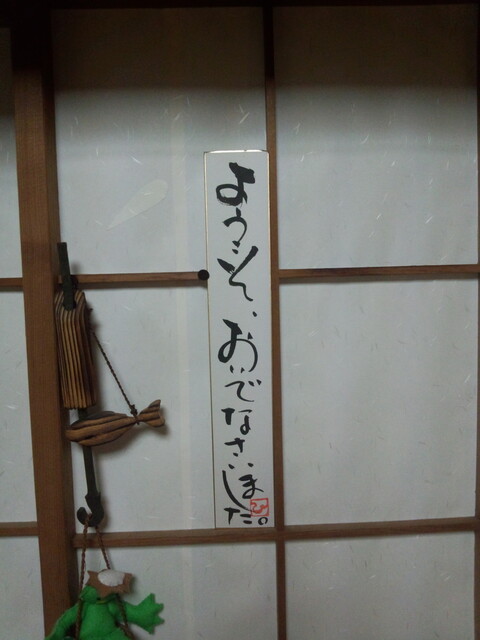 ようこそ、おいでなさいました。